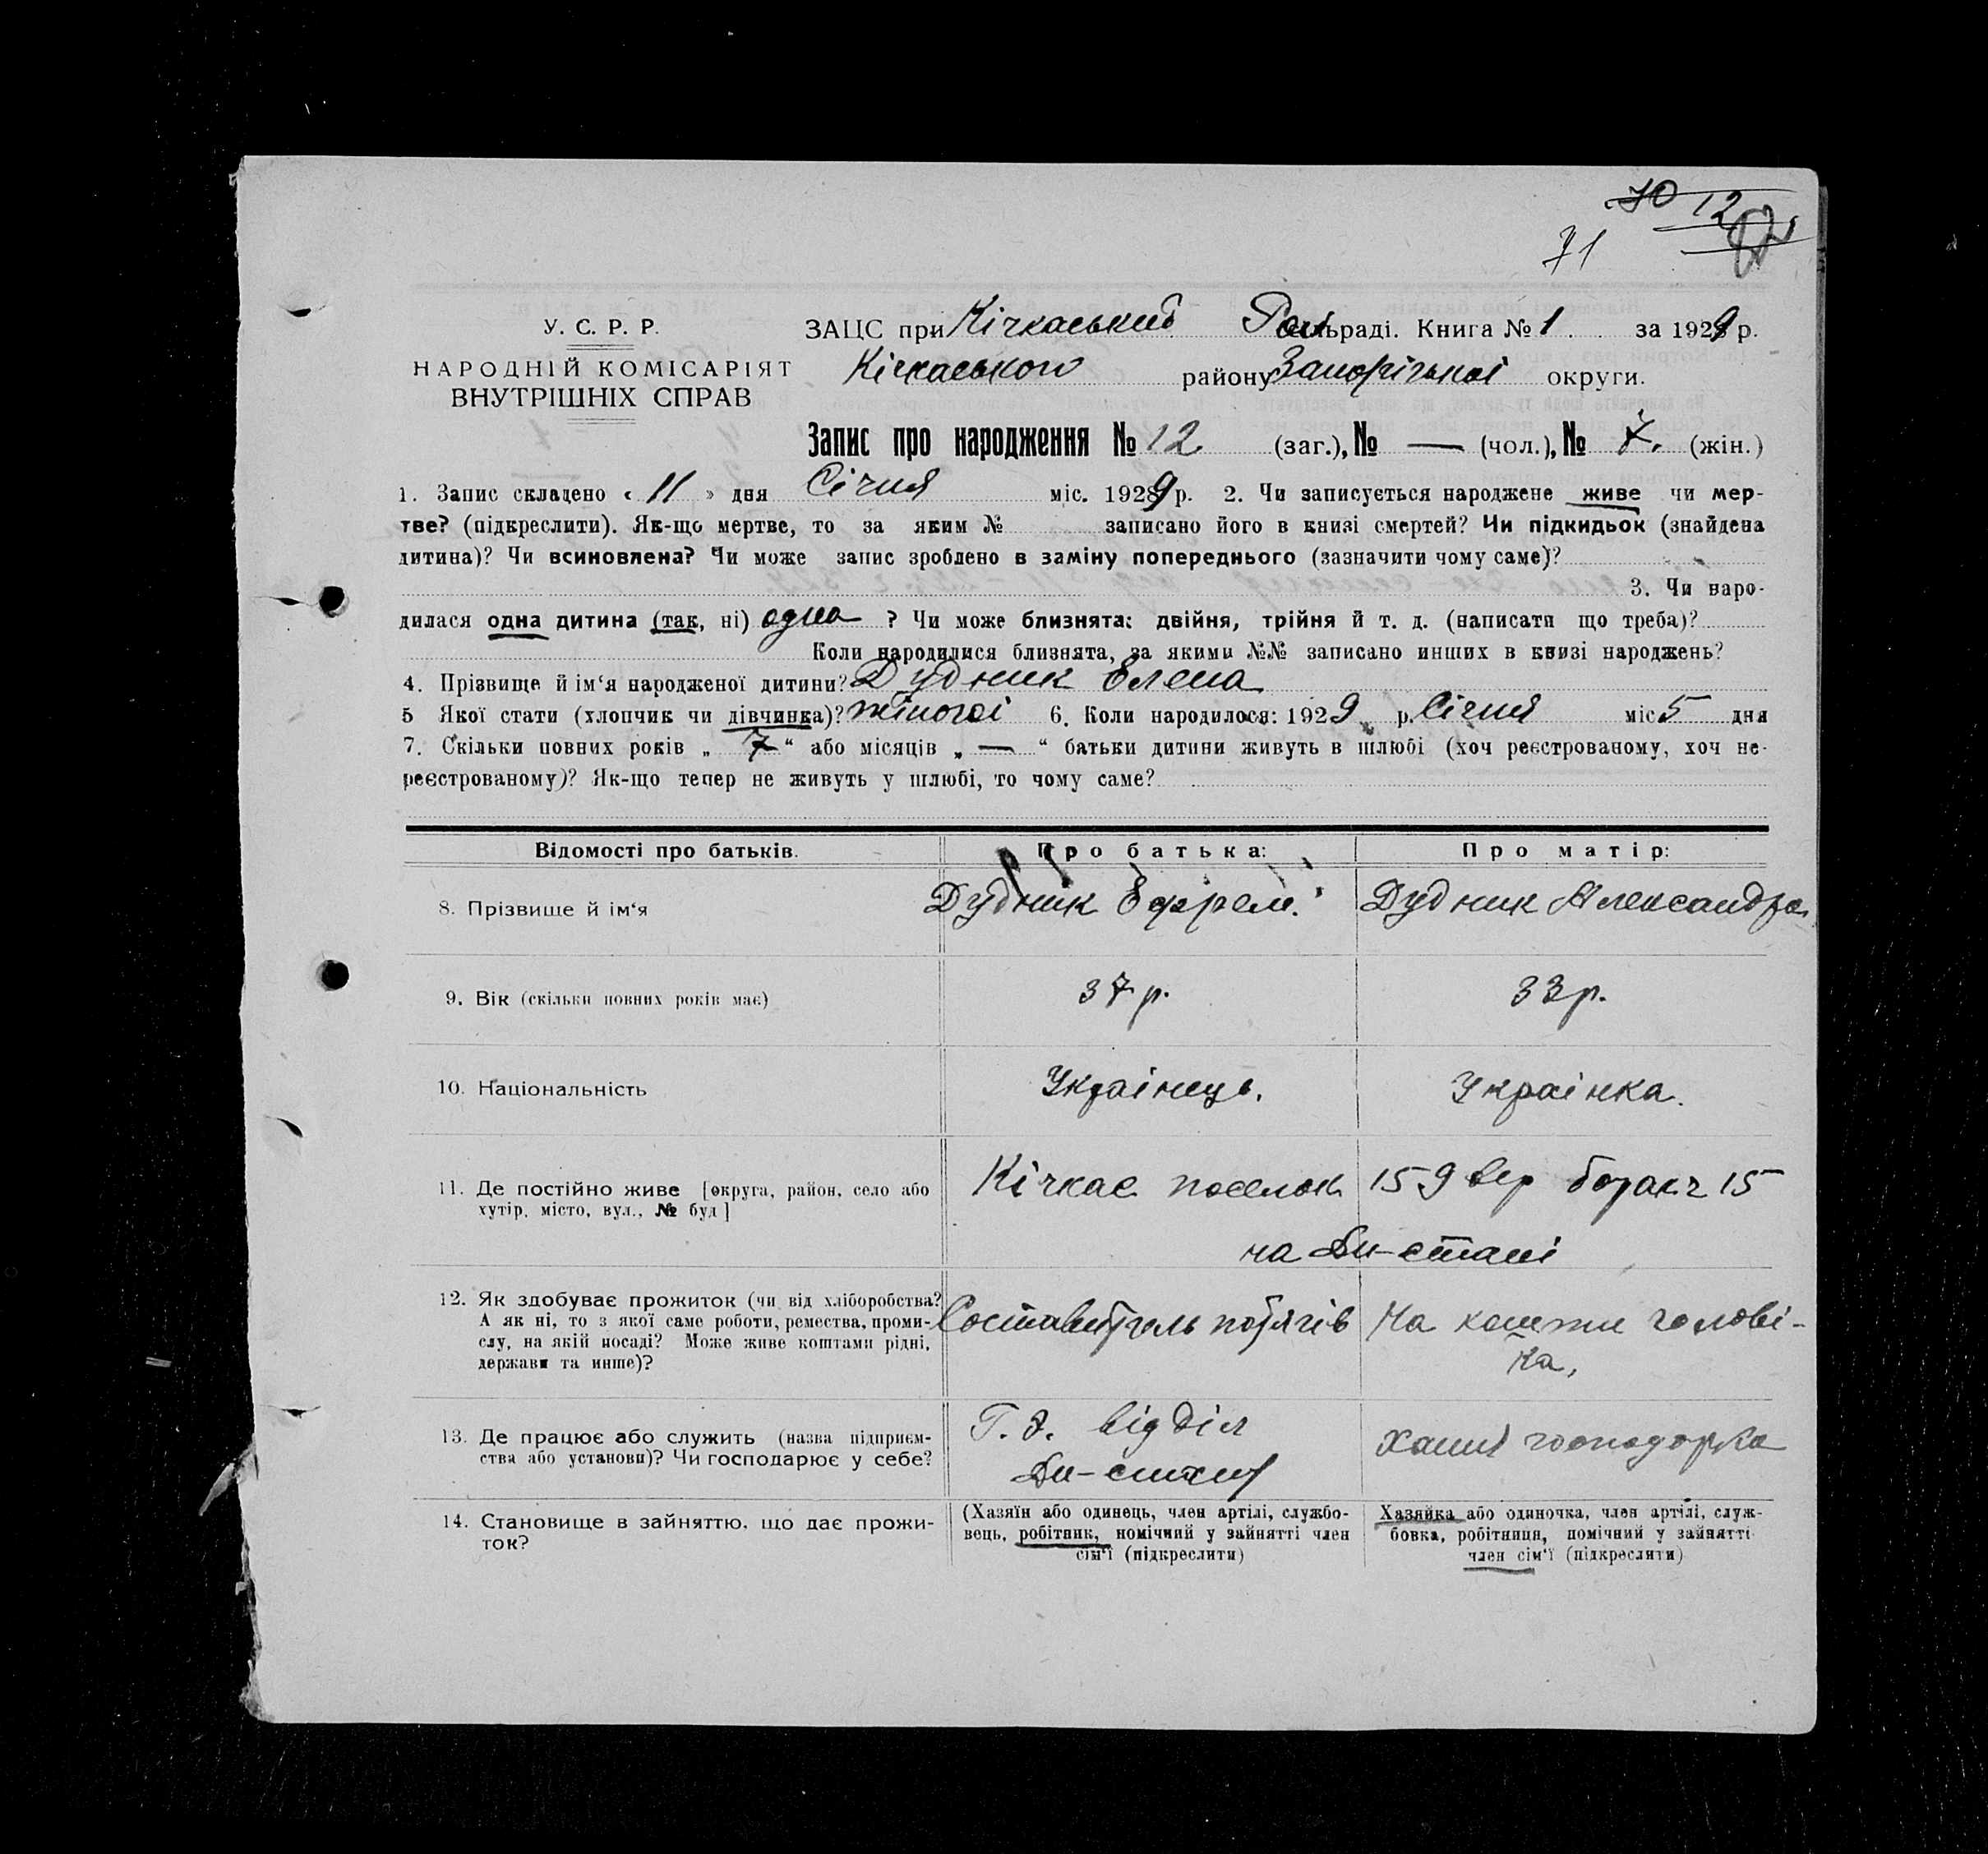 70 12
71
У. С. Р. Р.
НАРОДНІЙ КОМІСАРІЯТ
ВНУТРІШНІХ СПРАВ
ЗАЦС при Кічкаський Рай сільраді. Книга № 1 за 1929 р.
Кічкаського району Запорізької округи.
Запис про народження № 12 (заг.), № — (чол.), № 7. (жін.)
1. Запис складено « 11 » дня Січня міс. 1929 р. 2. Чи записується народжене живе чи мер-
тве? (підкреслити). Як-що мертве, то за яким № записано його в книзі смертей? Чи підкидьок (знайдена
дитина)? Чи всиновлена? Чи може запис зроблено в заміну попереднього (зазначити чому саме)?
3. Чи наро-
дилася одна дитина (так, ні) одна ? Чи може близнята: двійня, трійня й т. д. (написати що треба)?
Коли народилися близнята, за якими №№ записано инших в книзі народжень?
4. Прізвище й ім‘я народженої дитини? Дудник Елена
5 Якої стати (хлопчик чи дівчинка)? жіночої 6. Коли народилося: 1929 р. Січня міс 5 дня
7. Скільки повних років „ 7 “ або місяців „ — “ батьки дитини живуть в шлюбі (хоч реєстрованому, хоч не-
реєстрованому)? Як-що тепер не живуть у шлюбі, то чому саме?
Відомості про батьків. Про батька: Про матір:
8. Прізвище й ім‘я Дудник Ефрем. Дудник Александра
9. Вік (скільки повних років має) 37 р. 33 р.
10. Національність Українець. Українка.
11. Де постійно живе [округа, район, село або
хутір, місто, вул., № буд]
Кічкас поселок 159 вер барак 15
на Дн-стані
12. Як здобуває прожиток (чи від хліборобства?
А як ні, то з якої саме роботи, ремества, проми-
слу, на якій посаді? Може живе коштами рідні,
держави та инше)?
Составитель потягів
На кошти чолові-
ка,
13. Де працює або служить (назва підприєм-
ства або установи)? Чи господарює у себе?
Т. З. відділ
Дн-стану
Хатня господарка
14. Становище в зайняттю, що дає прожи-
ток?
(Хазяїн або одинець, член артілі, службо-
вець, робітник, помічний у зайнятті член
сім‘ї (підкреслити)
Хазяйка або одиночка, член артілі, служ-
бовка, робітниця, помічний у зайнятті
член сім‘ї (підкресляти)